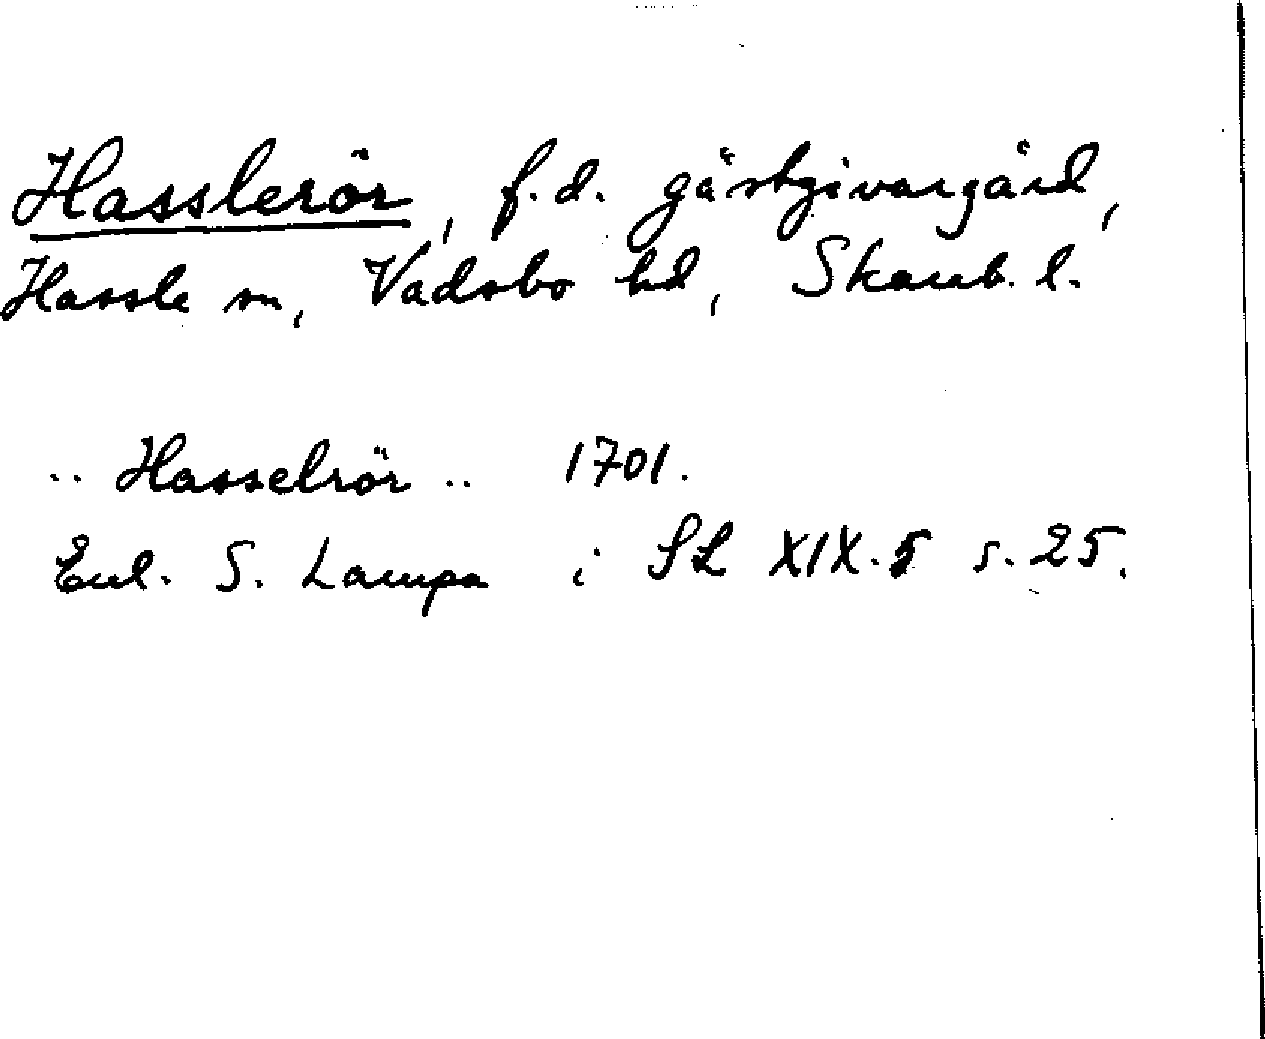 Hasslerör, f.d. gästgivargård,
Hassle sn, Vadsbo hd, Skarab. l.
.. Hasselrör .. 1701.
Enl. S. Lampa i SL XIX.5 s. 25.